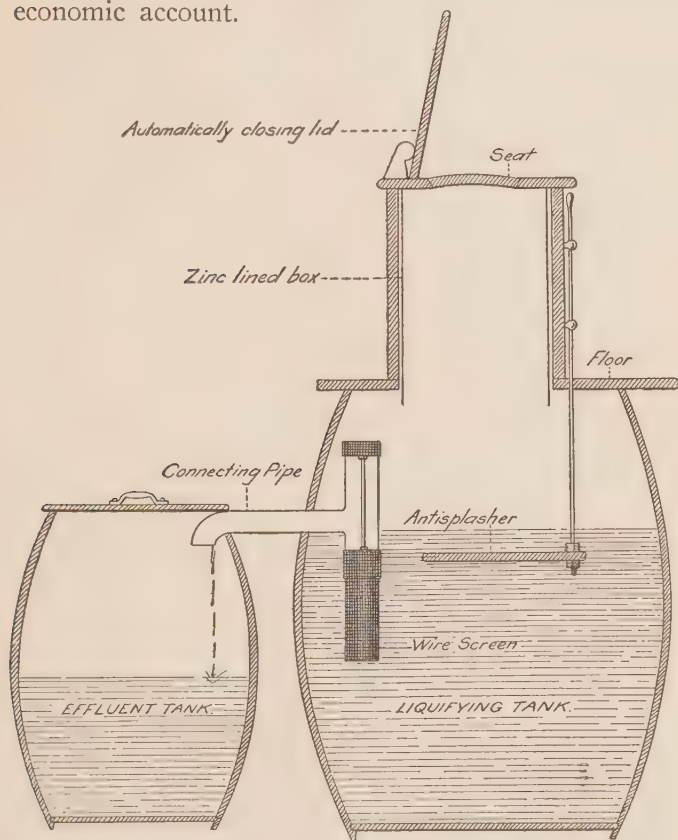 economic account.
Automatically closing lid
Seat
Zinc lined box
Floor
Connecting Pipe
Antisplasher
Wire Screen
EFFLUENT TANK.
LIQUIFYING TANK.